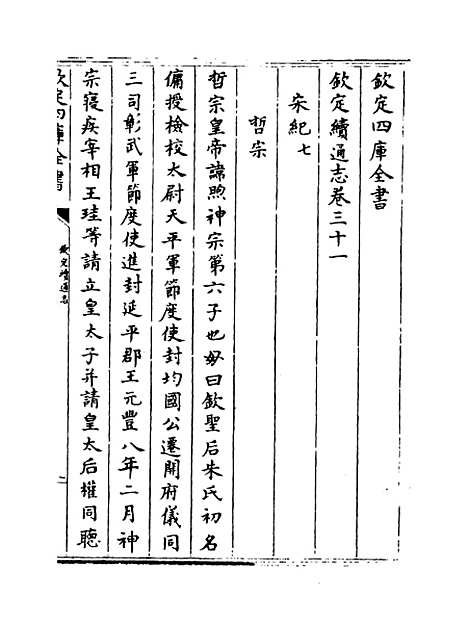 欽定四庫全書
欽定續通志卷三十一
宋紀七
哲宗
哲宗皇帝諱煦神宗第六子也母曰欽聖后朱氏初名
傭授檢校太尉天平軍節度使封均國公遷開府儀同
三司彰武軍節度使進封延平郡王元豐八年二月神
宗寢疾宰相王珪等請立皇太子并請皇太后權同聽
欽定四庫全書
欽定續通志